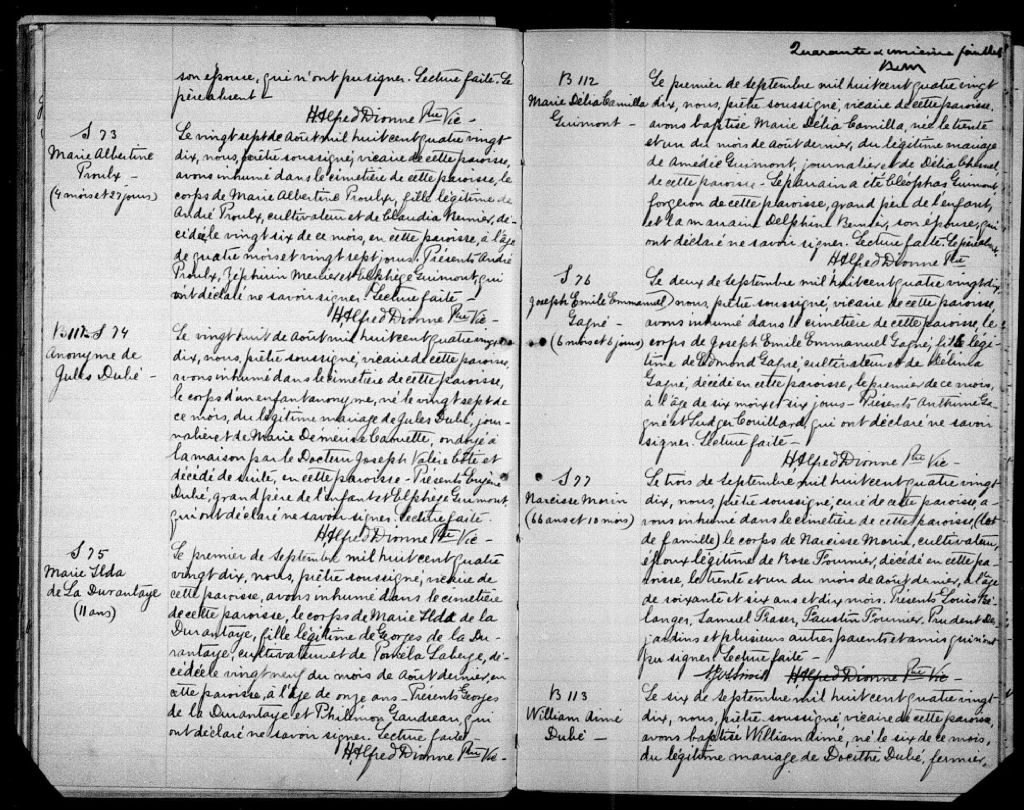 son épouse, qui n'ont pu signer. Lecture faite. Le
père absent -
HAlfred Dionne Ptre Vic -
S 73
Marie Albertine
Proulx -
(4 mois et 27 jours)
Le vingt sept de Août mil huit cent quatre vingt
dix, nous, prêtre soussigné, vicaire de cette paroisse,
avons inhumé dans le cimetière de cette paroisse, le
corps de Marie Albertine Proulx, fille légitime de
André Proulx, cultivateur et de Claudia Mercier, dé-
cédée le vingt six de ce mois, en cette paroisse, à l'âge
de quatre mois et vingt sept jours. Présents André
Proulx, Zéphirin Mercier et Elphège Guimont, qui
ont déclaré ne savoir signer. Lecture faite -
HAlfred Dionne Ptre Vic -
B 112 S 74
Anonyme de
Jules Dubé -
Le vingt huit de Août mil huit cent quatre vingt
dix, nous, prêtre soussigné, vicaire de cette paroisse,
avons inhumé dans le cimetière de cette paroisse,
le corps d'un enfant anonyme, né le vingt sept de
ce mois, du légitime mariage de Jules Dubé, jour-
nalier et de Marie Demerise Caouette, ondoyé à
la maison par le Docteur Joseph Valère Côté et
décédé de suite, en cette paroisse - Présents Eugène
Dubé, grand père de l'enfant et Elphège Guimont,
qui ont déclaré ne savoir signer. Lecture faite.
HAlfred Dionne Ptre Vic -
S 75
Marie Ilda
de La Durantaye
(11 ans)
Le premier de Septembre mil huit cent quatre
vingt dix, nous, prêtre soussigné, vicaire de
cette paroisse, avons inhumé dans le cimetière
de cette paroisse, le corps de Marie Ilda de la
Durantaye, fille légitime de Georges de la Du-
rantaye, cultivateur et de Paméla Laberge, dé-
cédée le vingt neuf du mois de Août dernier, en
cette paroisse, à l'âge de onze ans - Présents Georges
de la Durantaye et Philémon Gaudreau, qui
ont déclaré ne savoir signer. Lecture faite -
HAlfred Dionne Ptre Vic -
Quarante et unième feuillet
B 112
Marie Délia Camilla
Guimont -
Le premier de Septembre mil huit cent quatre vingt
dix, nous, prêtre soussigné, vicaire de cette paroisse,
avons baptisé Marie Délia Camilla, née le trente
et un du mois de août dernier, du légitime mariage
de Amédée Guimont, journalier et de Délia
de cette paroisse - Le parrain a été Cléophas Guimont
forgeron de cette paroisse, grand père de l'enfant,
et la marraine Delphine Bernier, son épouse, qui
ont déclaré ne savoir signer. Lecture faite. Le père absent.
HAlfred Dionne Ptre
S 76
Joseph Emile Emmanuel
Gagné -
(6 mois et 6 jours)
Le deux de Septembre mil huit cent quatre vingt dix,
nous, prêtre soussigné, vicaire de cette paroisse,
avons inhumé dans le cimetière de cette paroisse, le
corps de Joseph Emile Emmanuel Gagné, fils légi-
time de Edmond Gagné, cultivateur et de Mélina
Gagné, décédé en cette paroisse, le premier de ce mois,
à l'âge de six mois et six jours - Présents Anthime Ga-
gné et Ludger Couillard, qui ont déclaré ne savoir
signer. Lecture faite -
HAlfred Dionne Ptre Vic -
S 77
Narcisse Morin
(66 ans et 10 mois)
Le trois de Septembre mil huit cent quatre vingt
dix, nous, prêtre soussigné, curé de cette paroisse, a-
vons inhumé dans le cimetière de cette paroisse (lot
de famille) le corps de Narcisse Morin, cultivateur,
époux légitime de Rose Fournier, décédé en cette pa-
roisse, le trente et un du mois de Août dernier, à l'âge
de soixante et six ans et dix mois. Présents Louis Bé-
langer, Samuel Fraser, Faustin Fournier, Prudent Des-
jardins et plusieurs autres parents et amis qui n'ont
pu signer. Lecture faite -
HAlfred Dionne Ptre Vic -
B 113
William Aimé
Dubé -
Le six de Septembre mil huit cent quatre vingt-
dix, nous, prêtre soussigné, vicaire de cette paroisse,
avons baptisé William Aimé, né le six de ce mois,
du légitime mariage de Docithe Dubé, fermier,